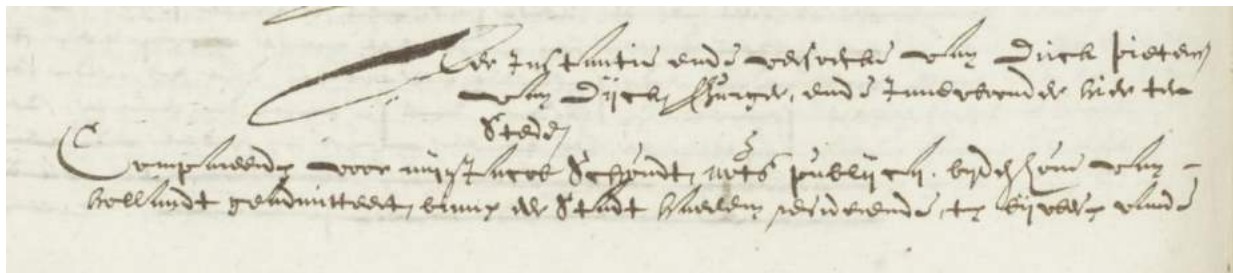 Ter Instantie ende versoecke van Dirck pieters
van Dijck, Chirurgijn, ende Inwoonder hier ter
Stede
Compareerde voor mij Jacob Schoudt, nots publijcq, bijden hove van
hollandt geadmitteert, binnen der Stadt haerlem residerende, ten bijwesen vande